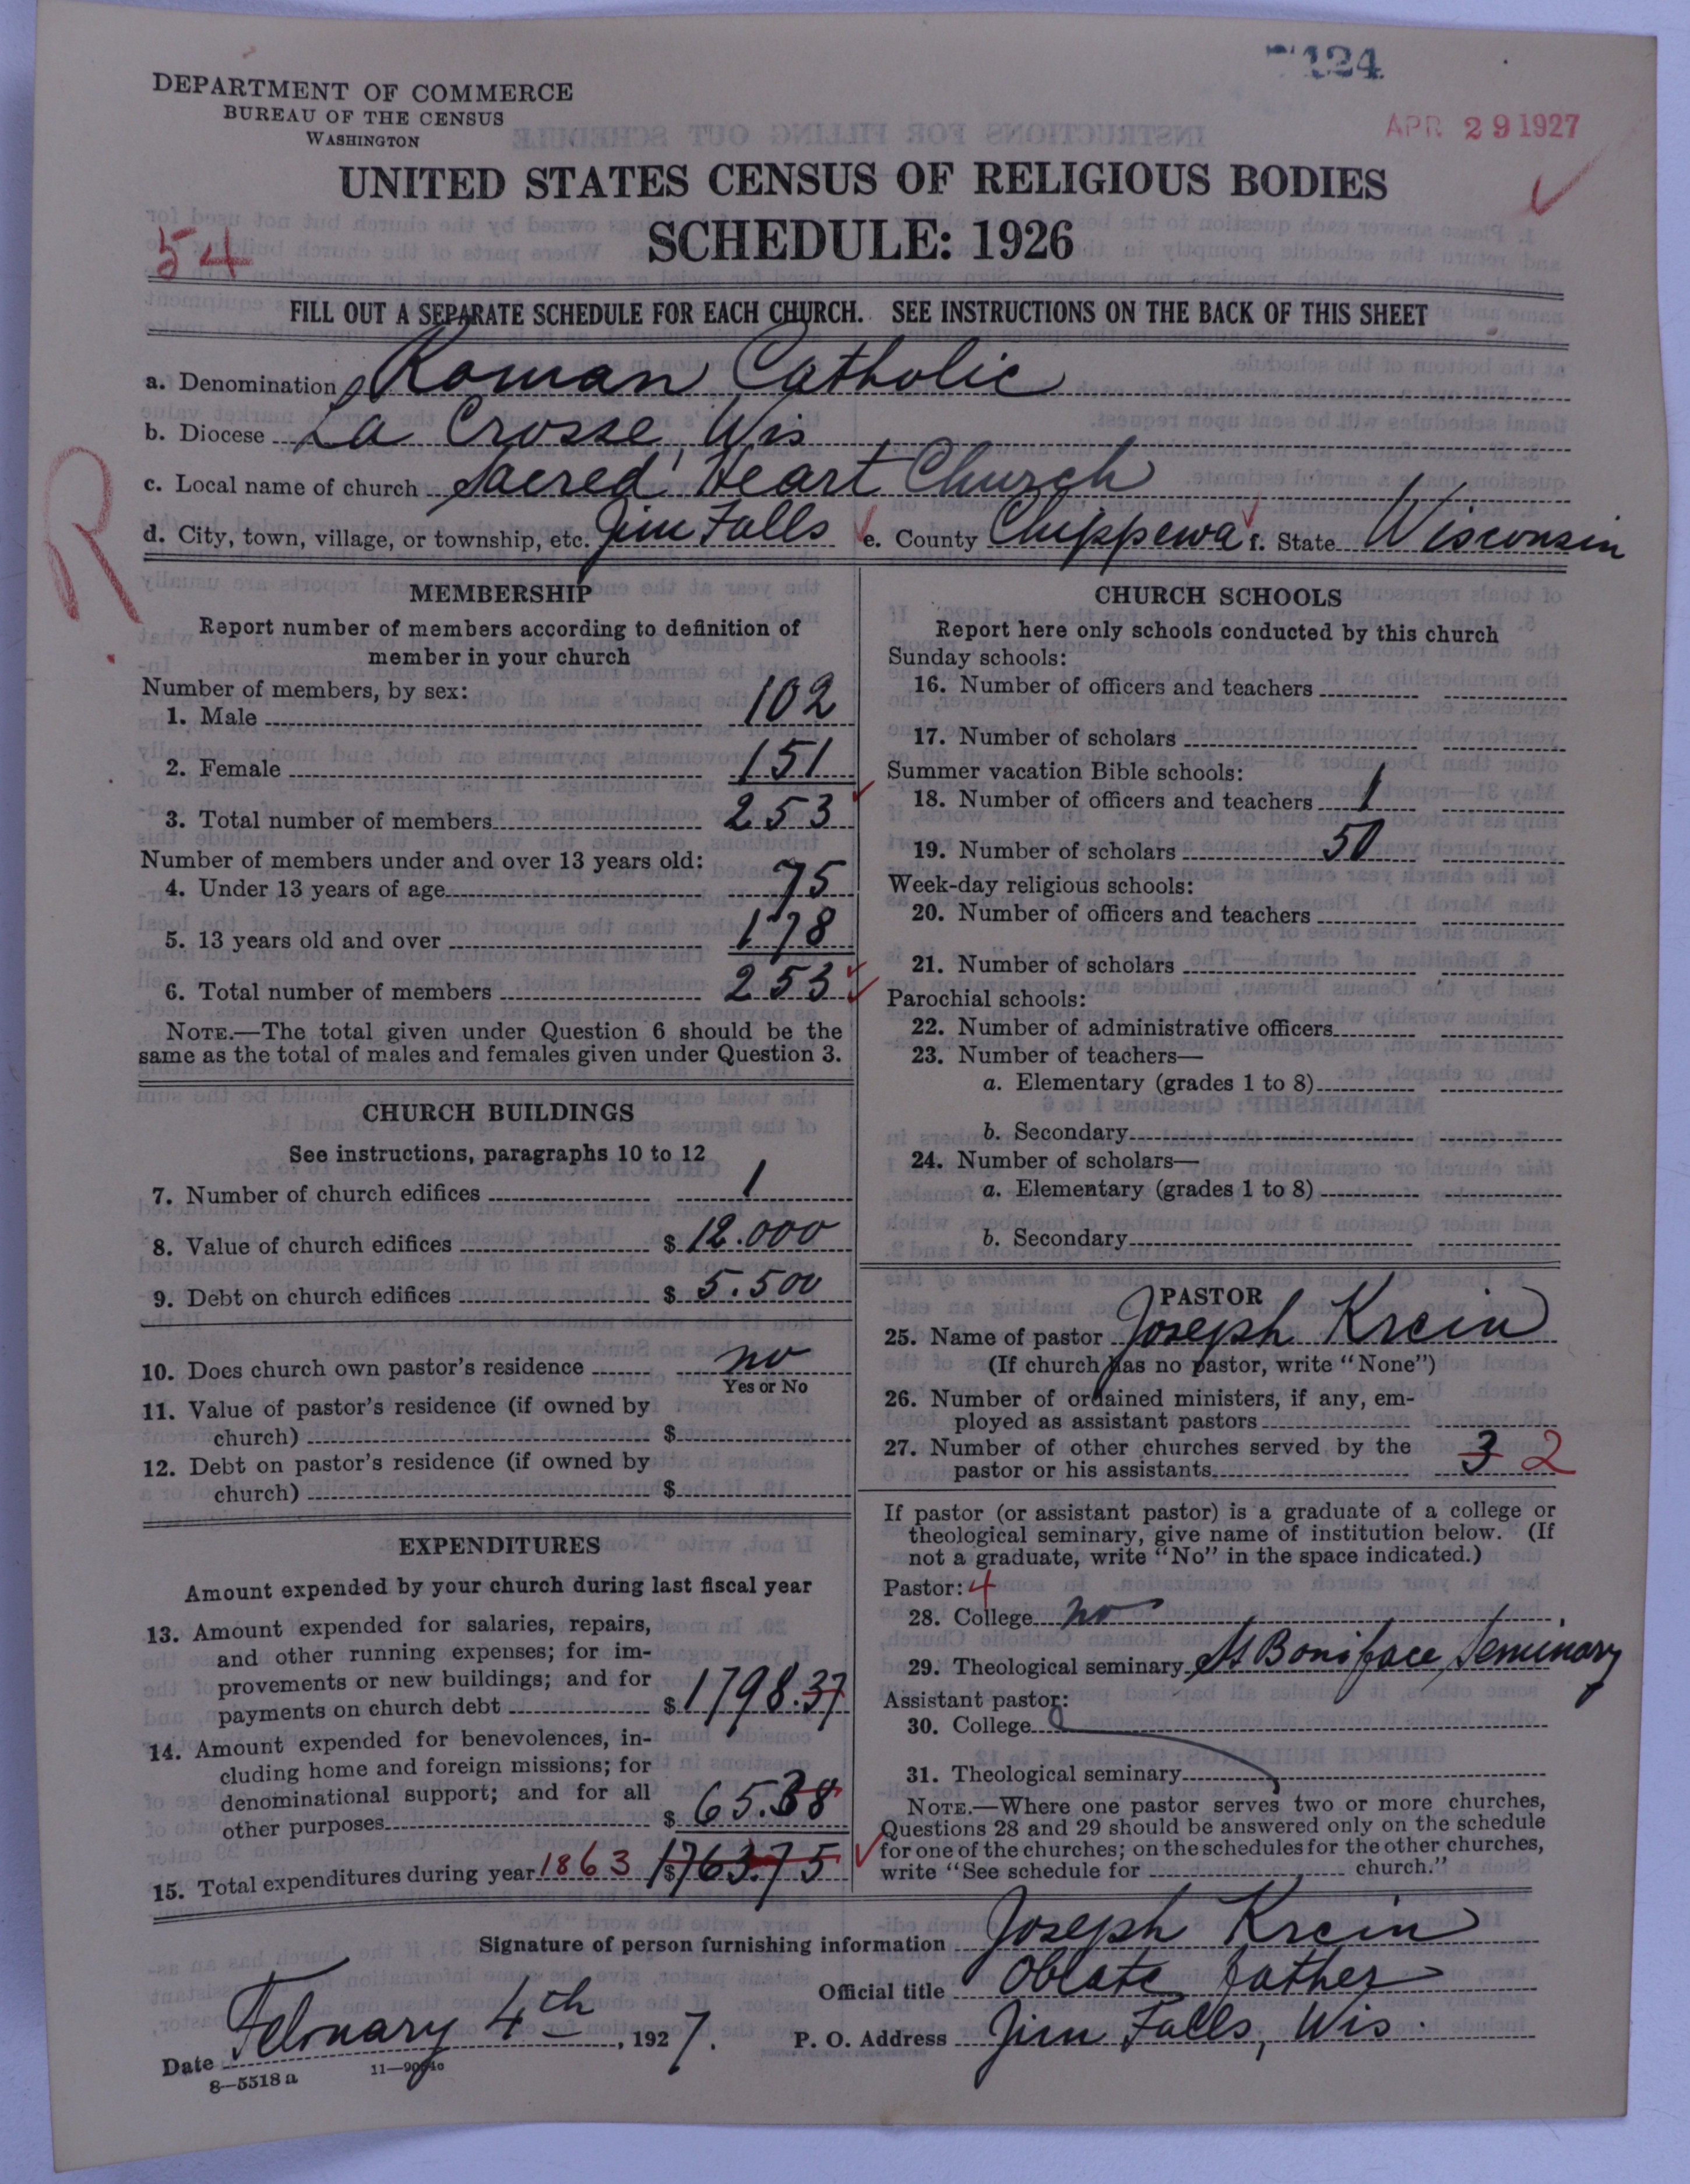 7124
DEPARTMENT OF COMMERCE
BUREAU OF THE CENSUS
WASHINGTON
APR 29 1927
UNITED STATES CENSUS OF RELIGIOUS BODIES
SCHEDULE: 1926
54
FILL OUT A SEPARATE SCHEDULE FOR EACH CHURCH. SEE INSTRUCTIONS ON THE BACK OF THIS SHEET
a. Denomination Roman Catholic
b. Diocese La Crosse, Wis
c. Local name of church Sacred Heart Church
d. City, town, village, or township, etc. Jim Falls e. County Chippewa f. State Wisconsin
R
MEMBERSHIP
Report number of members according to definition of
member in your church
Number of members, by sex:
1. Male 102
2. Female 151
3. Total number of members 253
Number of members under and over 13 years old:
4. Under 13 years of age 75
5. 13 years old and over 178
6. Total number of members 253
NOTE.—The total given under Question 6 should be the
same as the total of males and females given under Question 3.
CHURCH BUILDINGS
See instructions, paragraphs 10 to 12
7. Number of church edifices 1
8. Value of church edifices $ 12.000
9. Debt on church edifices $ 5.500
10. Does church own pastor's residence no
Yes or No
11. Value of pastor's residence (if owned by
church) $
12. Debt on pastor's residence (if owned by
church) $
EXPENDITURES
Amount expended by your church during last fiscal year
13. Amount expended for salaries, repairs,
and other running expenses; for im-
provements or new buildings; and for
payments on church debt $ 1798.37
14. Amount expended for benevolences, in-
cluding home and foreign missions; for
denominational support; and for all
other purposes $ 65.38
15. Total expenditures during year 1863 $ 1763.75
CHURCH SCHOOLS
Report here only schools conducted by this church
Sunday schools:
16. Number of officers and teachers
17. Number of scholars
Summer vacation Bible schools:
18. Number of officers and teachers 1
19. Number of scholars 50
Week-day religious schools:
20. Number of officers and teachers
21. Number of scholars
Parochial schools:
22. Number of administrative officers
23. Number of teachers—
a. Elementary (grades 1 to 8)
b. Secondary
24. Number of scholars—
a. Elementary (grades 1 to 8)
b. Secondary
PASTOR
25. Name of pastor Joseph Krein
(If church has no pastor, write "None")
26. Number of ordained ministers, if any, em-
ployed as assistant pastors
27. Number of other churches served by the
pastor or his assistants 3 2
If pastor (or assistant pastor) is a graduate of a college or
theological seminary, give name of institution below. (If
not a graduate, write "No" in the space indicated.)
Pastor: 4
28. College no
29. Theological seminary St Boniface Seminary
Assistant pastor:
30. College
31. Theological seminary
NOTE.—Where one pastor serves two or more churches,
Questions 28 and 29 should be answered only on the schedule
for one of the churches; on the schedules for the other churches,
write "See schedule for church."
Signature of person furnishing information Joseph Krein
Official title Oblate father
Date February 4th, 1927. P. O. Address Jim Falls, Wis.
8—5518 a